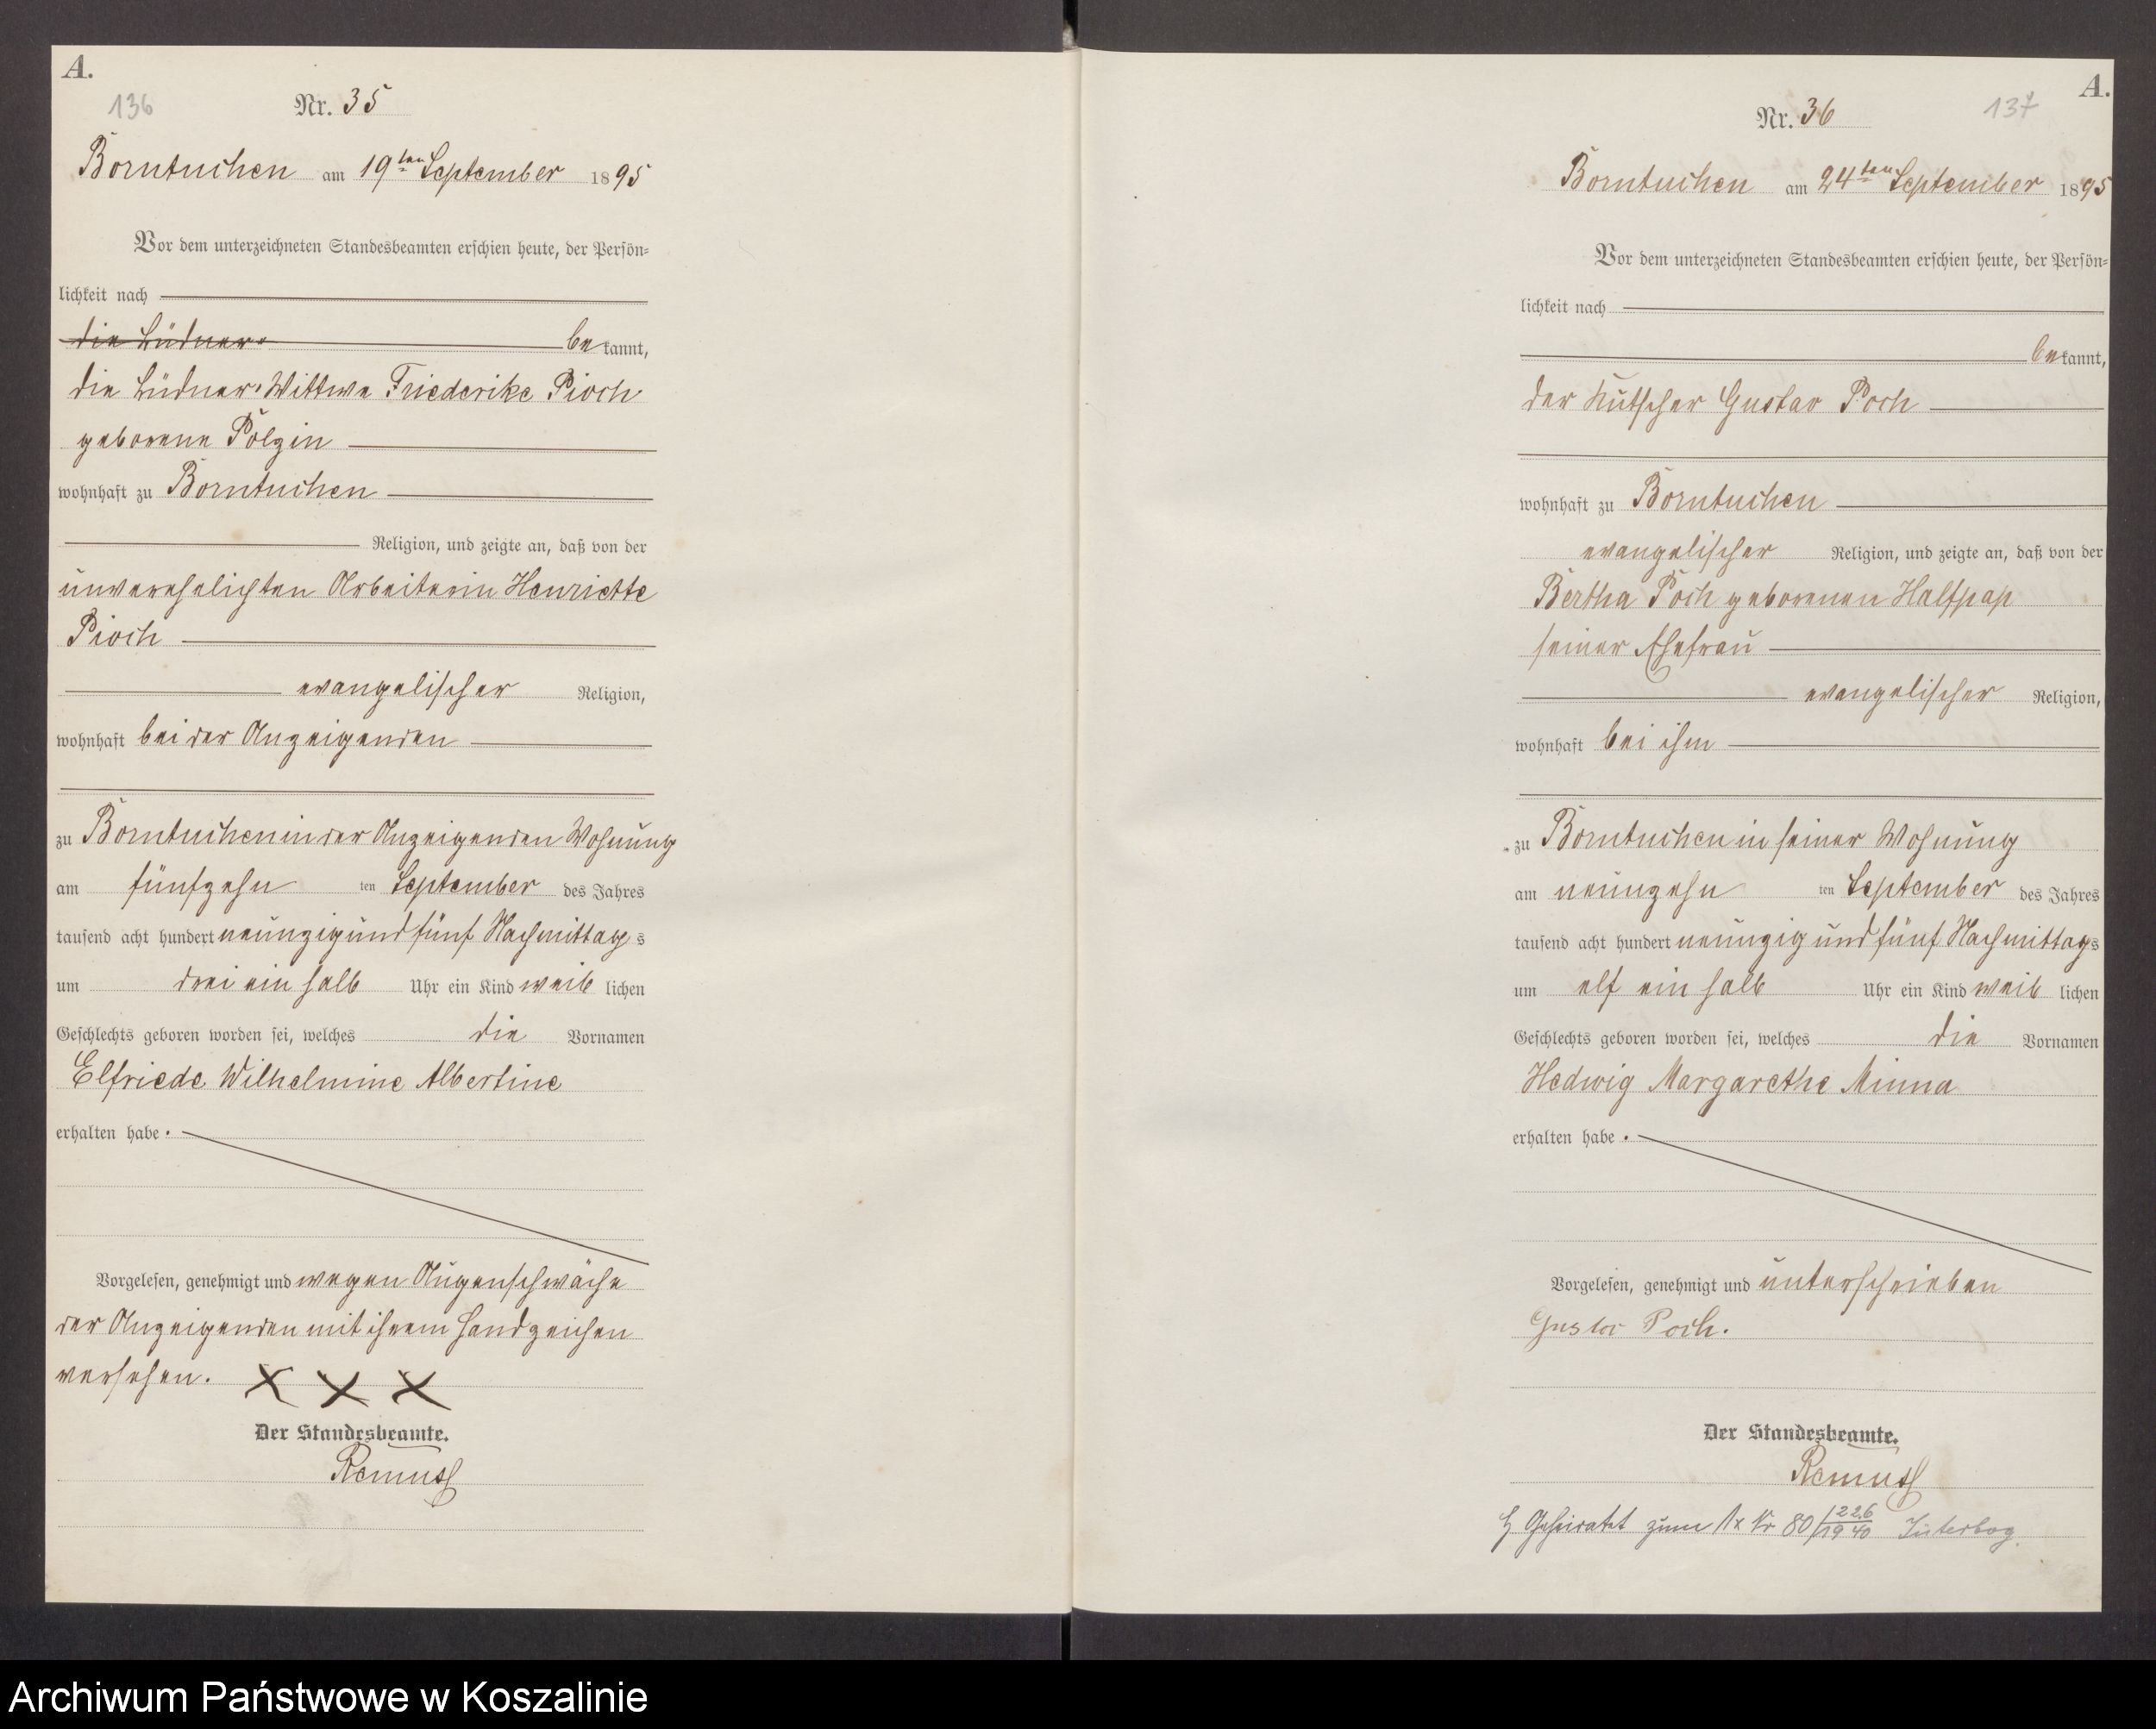 A.
136
Nr. 35
Borntuchen am 19ten September 1895
Vor dem unterzeichneten Standesbeamten erschien heute, der Persön-
lichkeit nach
die Büdner- bekannt,
die Büdner-Wittwe Friederike Pioch
geborene Polzin
wohnhaft zu Borntuchen
Religion, und zeigte an, daß von der
unverehelichten Arbeiterin Henriette
Pioch
evangelischer Religion,
wohnhaft bei der Anzeigenden
zu Borntuchen in der Anzeigenden Wohnung
am fünfzehn ten September des Jahres
tausend acht hundert neunzig und fünf Nachmittags
um drei ein halb Uhr ein Kind weiblichen
Geschlechts geboren worden sei, welches die Vornamen
Elfriede Wilhelmine Albertine
erhalten habe.
Vorgelesen, genehmigt und wegen Augenschwäche
der Anzeigenden mit ihrem Handzeichen
versehen. X X X
Der Standesbeamte.
Remus
A.
137
Nr. 36
Borntuchen am 24ten September 1895
Vor dem unterzeichneten Standesbeamten erschien heute, der Persön-
lichkeit nach
bekannt,
der Kutscher Gustav Poch
wohnhaft zu Borntuchen
evangelischer Religion, und zeigte an, daß von der
Bertha Poch geborenen Halfpap
seiner Ehefrau
evangelischer Religion,
wohnhaft bei ihm
zu Borntuchen in seiner Wohnung
am neunzehn ten September des Jahres
tausend acht hundert neunzig und fünf Nachmittags
um elf ein halb Uhr ein Kind weiblichen
Geschlechts geboren worden sei, welches die Vornamen
Hedwig Margarethe Minna
erhalten habe.
Vorgelesen, genehmigt und unterschrieben
Gustav Poch.
Der Standesbeamte.
Remus
Geheiratet zum Nr 80/1940 Jüterbog.
Archiwum Państwowe w Koszalinie